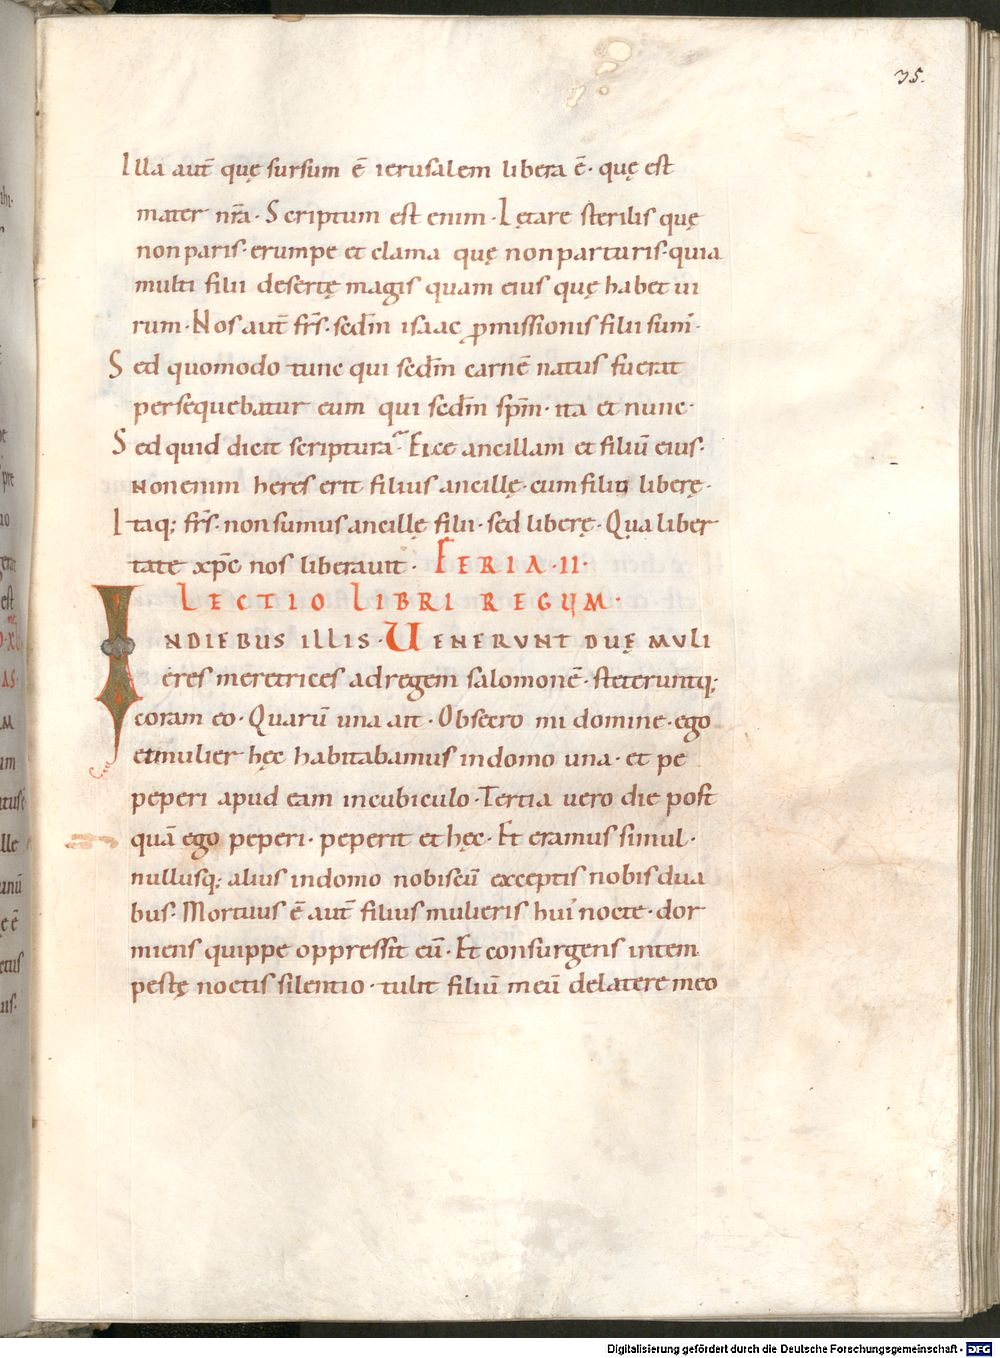 35.
Illa aut̄ quę sursum ē ierusalem libera ē· quę est
mater nr̄a· Scriptum est enim· Lętare sterilis quę
non paris· erumpe et clama quę non parturis· quia
multi filii desertę magis quam eius quę habet ui
rum· Nos aut̄ fr̄s· scdm̄ isaac ꝓmissionis filii sum̄·
Sed quomodo tunc qui scdm̄ carnē natus fuerat
persequebatur eum qui scdm̄ spm̄· ita et nunc·
Sed quid dicit scriptura? Eice ancillam et filiū eius·
Non enim heres erit filius ancillę· cum filio liberę·
Itaq; fr̄s· non sumus ancillę filii· sed liberę· Qua liber
tate xp̄c nos liberauit· FERIA·II·
LECTIO LIBRI REGUM·
INDIEBUS ILLIS· UENERUNT DUĘ MULI
eres meretrices ad regem salomonē· steteruntq;
coram eo· Quarū una ait· Obsecro mi domine· ego
et mulier hęc habitabamus in domo una· et pe
peperi apud eam in cubiculo· Tertia uero die post
quā ego peperi· peperit et hęc· Et eramus simul·
nullusq; alius in domo nobiscū exceptis nobis dua
bus· Mortuus ē aut̄ filius mulieris hui' nocte· dor
miens quippe oppressit eū· Et consurgens intem
pestę noctis silentio· tulit filiū meū de latere meo
Digitalisierung gefördert durch die Deutsche Forschungsgemeinschaft - DFG